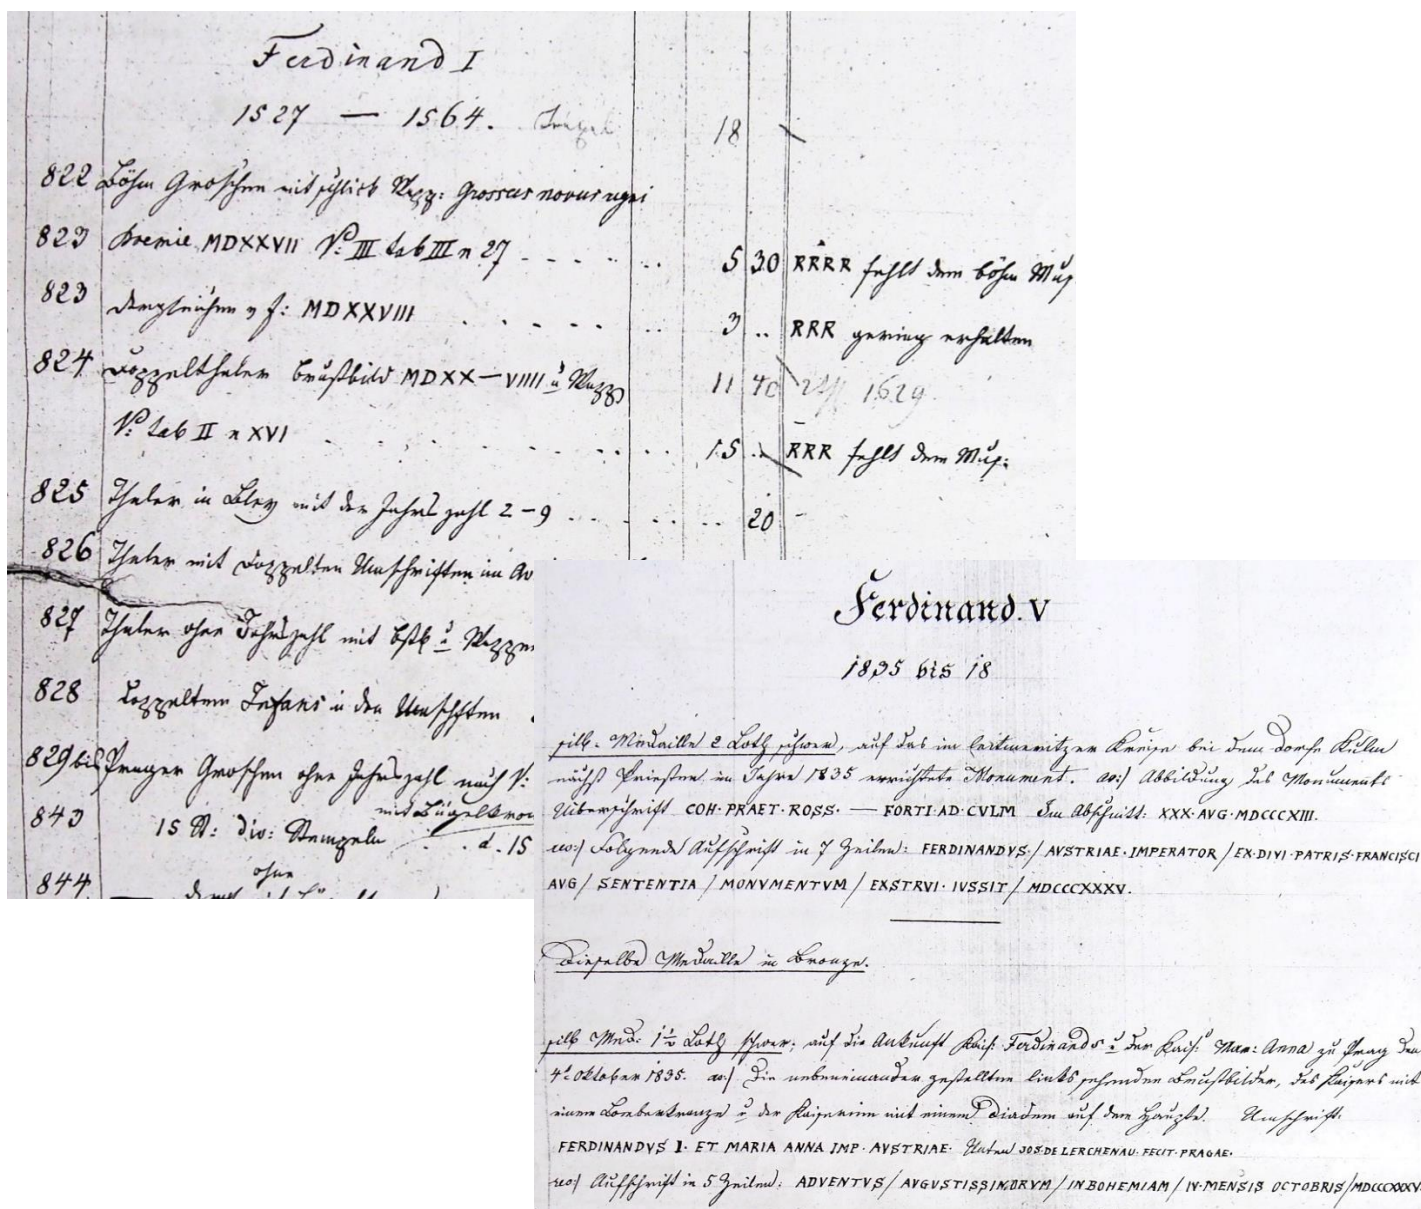 Ferdinand I
1527 — 1564.
18
822 Böhm Groschen mit schlick Wapp: Grossus novus regni
823 Boemie MDXXVII V: III tab III n 27 5 30 RRRR fehlt dem böhm Mus
823 dergleichen v J: MDXXVIII 3 .. RRR gering erhalten
824 Doppelthaler Brustbild MDXX—VIIII u Wapp 11 40 1629
V: tab II n XVI 15 .. RRR fehlt dem Mus:
825 Thaler in Bley mit der Jahrszahl 2–9 20 –
826 Thaler mit Doppelten Umschriften im Av
827 Thaler ohne Jahrszahl mit bstb u Wappen
828 Doppeltem Infans in den Umschften
829 bis Prager Groschen ohne Jahrszahl nach V:
mit Bügelkron
843 15 St: div: Stempeln d. 15
ohne
844.
Ferdinand. V
1835 bis 18
silb. Medaille 2 Loth schwer, auf das im leitmeritzer Kreise bei dem Dorfe Kulm
nächst Priesten im Jahre 1835 errichtete Monument. av:) Abbildung des Monuments
Uiberschrift COH· PRAET· ROSS· — FORTI· AD· CVLM Im Abschnitt: XXX· AVG· MDCCCXIII.
rev:) Folgende Aufschrift in 7 Zeilen: FERDINANDVS·/ AVSTRIAE· IMPERATOR / EX· DIVI· PATRIS· FRANCISCI
AVG / SENTENTIA / MONVMENTVM / EXSTRVI· IVSSIT / MDCCCXXXV.
Dieselbe Medaille in Bronze.
silb Med: 1½ Loth schwer; auf die Ankunft Kais: Ferdinands u der Kais: Mar: Anna zu Prag den
4t Oktober 1835. av:) Die nebeneinander gestellten links sehenden Brustbilder, des Kaisers mit
einem Lorberkranze u der Kaiserinn mit einem Diadem auf dem Haupte. Umschrift:
FERDINANDVS I· ET MARIA ANNA IMP· AVSTRIAE· Unten JOS· DE LERCHENAU· FECIT· PRAGAE·
rev:) Aufschrift in 5 Zeilen: ADVENTVS / AVGVSTISSIMORVM / IN BOHEMIAM / IV· MENSIS OCTOBRIS / MDCCCXXXV·